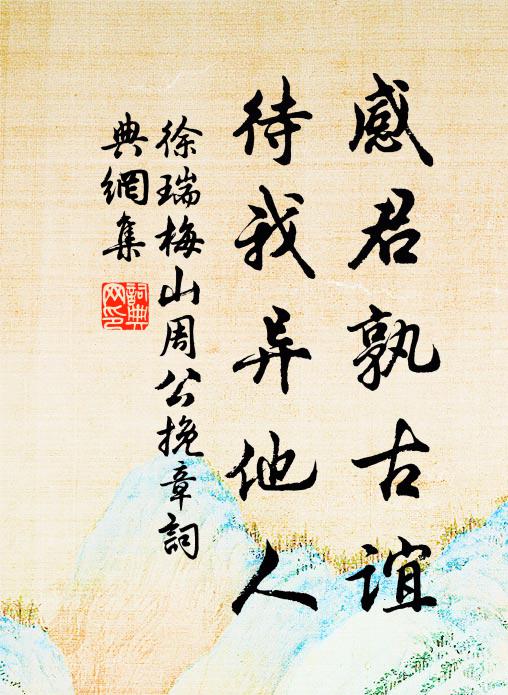 感君孰古誼
待我异他人
徐瑞梅山周公挽章詞
典網集
詞典網印